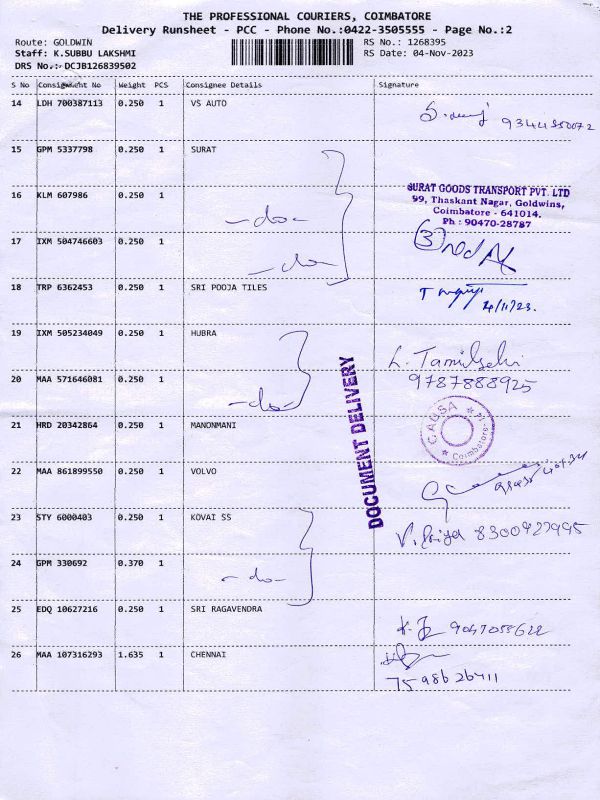 THE PROFESSIONAL COURIERS, COIMBATORE
Delivery Runsheet - PCC - Phone No.:0422-3505555 - Page No.:2
Route: GOLDWIN RS No.: 1268395
Staff: K.SUBBU LAKSHMI RS Date: 04-Nov-2023
DRS No.:-DCJB126839502
S No Consignment No Weight PCS Consignee Details Signature
14 LDH 700387113 0.250 1 VS AUTO
15 GPM 5337798 0.250 1 SURAT
16 KLM 607986 0.250 1 -do-
SURAT GOODS TRANSPORT PVT. LTD
99, Thaskant Nagar, Goldwins,
Coimbatore - 641014.
Ph : 90470-28787
17 IXM 504746603 0.250 1 -do-
3
18 TRP 6362453 0.250 1 SRI POOJA TILES
4/11/23.
19 IXM 505234049 0.250 1 HUBRA
L. Tamilselvi
9787888925
20 MAA 571646081 0.250 1 -do-
DOCUMENT DELIVERY
21 HRD 20342864 0.250 1 MANONMANI
Coimbatore
22 MAA 861899550 0.250 1 VOLVO
23 STY 6000403 0.250 1 KOVAI SS
V. Priya 8300927995
24 GPM 330692 0.370 1 -do-
25 EDQ 10627216 0.250 1 SRI RAGAVENDRA
9047055622
26 MAA 107316293 1.635 1 CHENNAI
7598626711